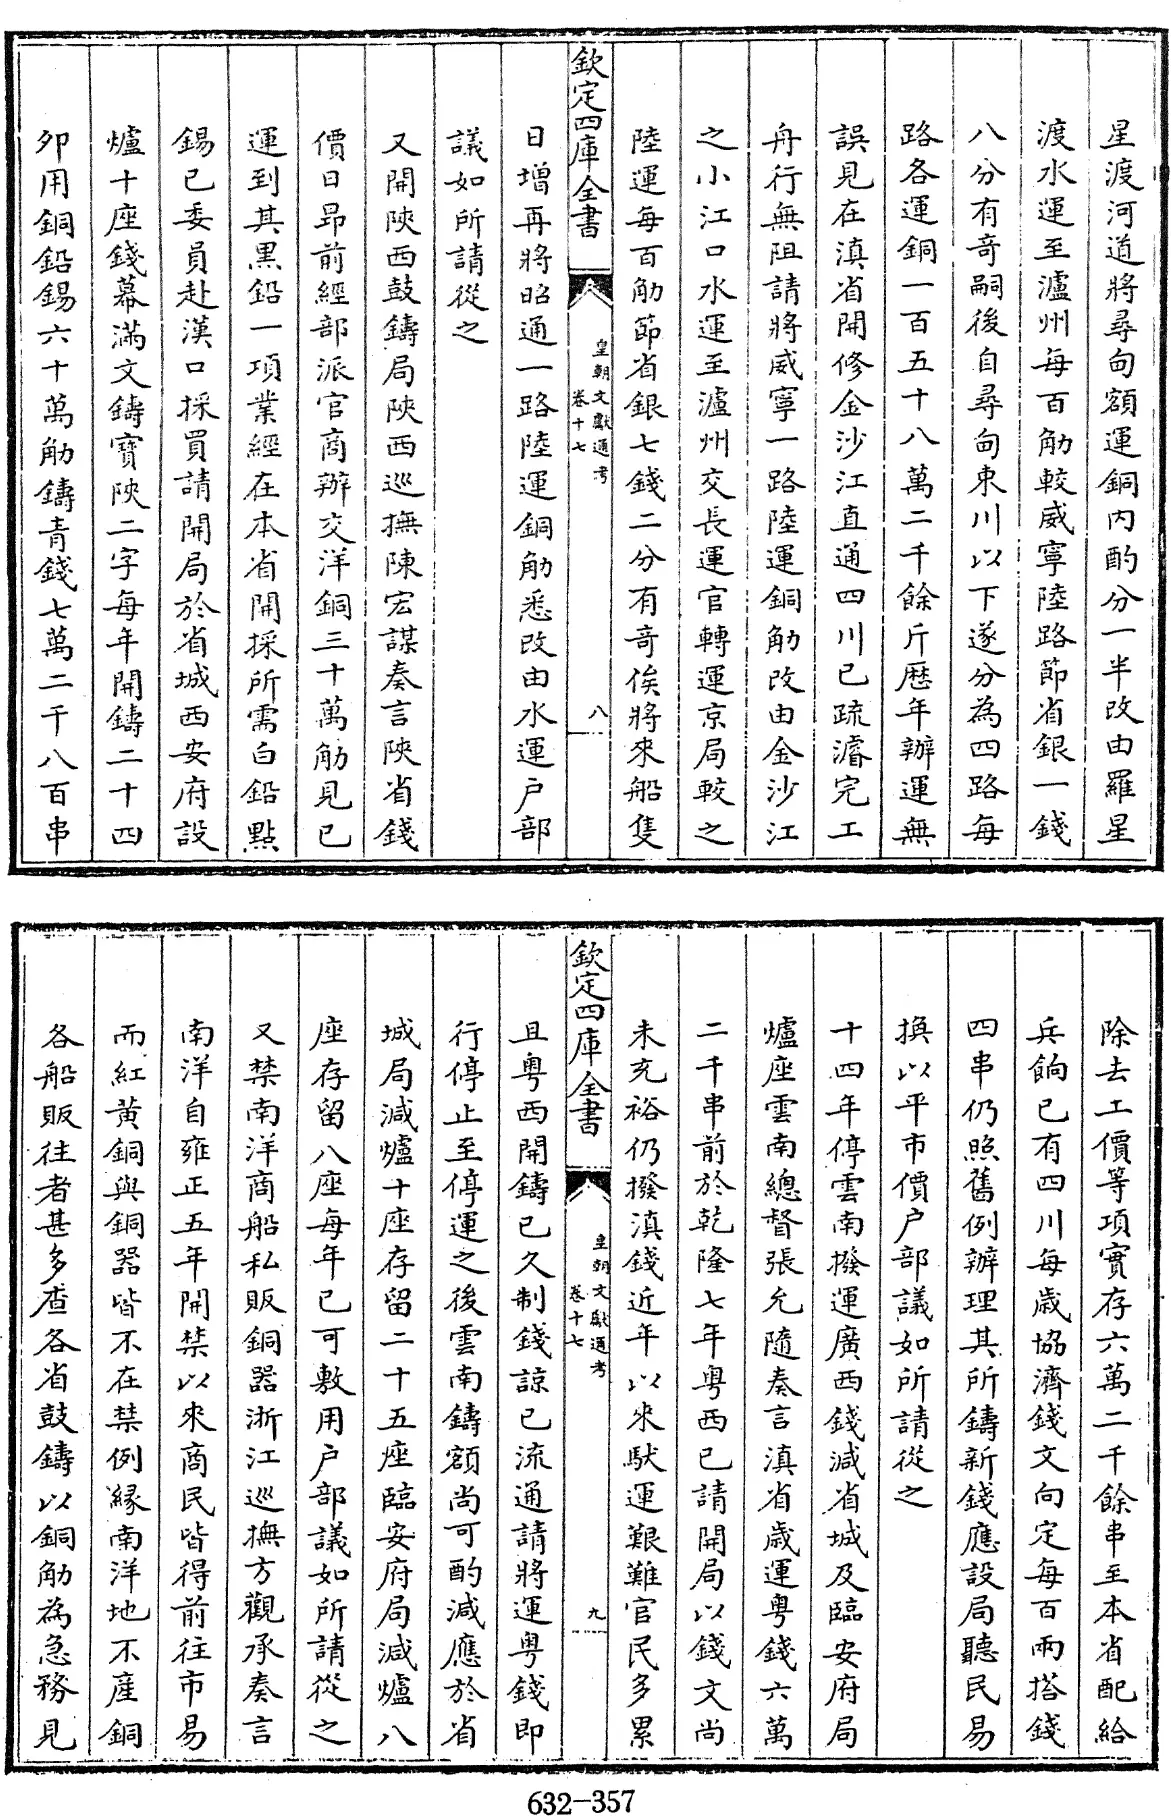 星渡河道將尋甸額運銅内酌分一半改由羅星
渡水運至瀘州每百觔較威寧陸路節省銀一錢
八分有奇嗣後自尋甸東川以下遂分為四路每
路各運銅一百五十八萬二千餘斤歴年辦運無
誤見在滇省開修金沙江直通四川已疏濬完工
舟行無阻請將威寧一路陸運銅觔改由金沙江
之小江口水運至瀘州交長運官轉運京局較之
陸運每百觔節省銀七錢二分有奇俟將來船隻
欽定四庫全書
皇朝文獻通考
卷十七
八
日增再將昭通一路陸運銅觔悉改由水運户部
議如所請從之
又開陜西鼓鑄局陜西巡撫陳宏謀奏言陜省錢
價日昻前經部派官商辦交洋銅三十萬觔見已
運到其黒鉛一項業經在本省開採所需白鉛點
錫已委員赴漢口採買請開局於省城西安府設
爐十座錢幕滿文鑄寶陜二字每年開鑄二十四
卯用銅鉛錫六十萬觔鑄青錢七萬二千八百串
除去工價等項實存六萬二千餘串至本省配給
兵餉已有四川每歲協濟錢文向定每百兩搭錢
四串仍照舊例辦理其所鑄新錢應設局聽民易
換以平市價户部議如所請從之
十四年停雲南撥運廣西錢減省城及臨安府局
爐座雲南總督張允隨奏言滇省歲運粤錢六萬
二千串前於乾隆七年粤西已請開局以錢文尚
未充裕仍撥滇錢近年以來馱運艱難官民多累
欽定四庫全書
皇朝文獻通考
卷十七
九
且粤西開鑄已久制錢諒已流通請將運粤錢即
行停止至停運之後雲南鑄額尚可酌減應於省
城局減爐十座存留二十五座臨安府局減爐八
座存留八座每年已可敷用户部議如所請從之
又禁南洋商船私販銅器浙江巡撫方觀承奏言
南洋自雍正五年開禁以來商民皆得前往市易
而紅黃銅與銅器皆不在禁例縁南洋地不產銅
各船販往者甚多查各省鼓鑄以銅觔為急務見
632-357